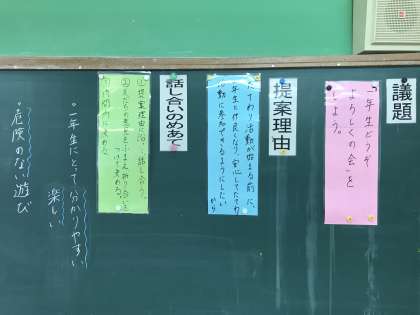 議題
「一年生どうぞ
よろしくの会」を
しよう。
提案理由
たてわり活動が始まる前に、
一年生と仲良くなり、安心してたてわ
り活動に参加できるようにしたい
から
話し合いのめあて
①提案理由に沿って話し合おう。
②友だちの考えをふまえ、折り合いを
つけて決める。
③時間内に決める。
・一年生にとって分かりやすい
楽しい
・危険のない遊び